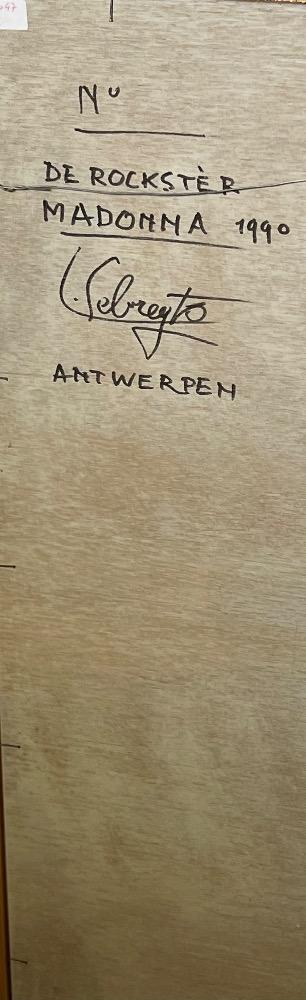 Nº
DE ROCKSTÈR
MADONNA 1990
ANTWERPEN